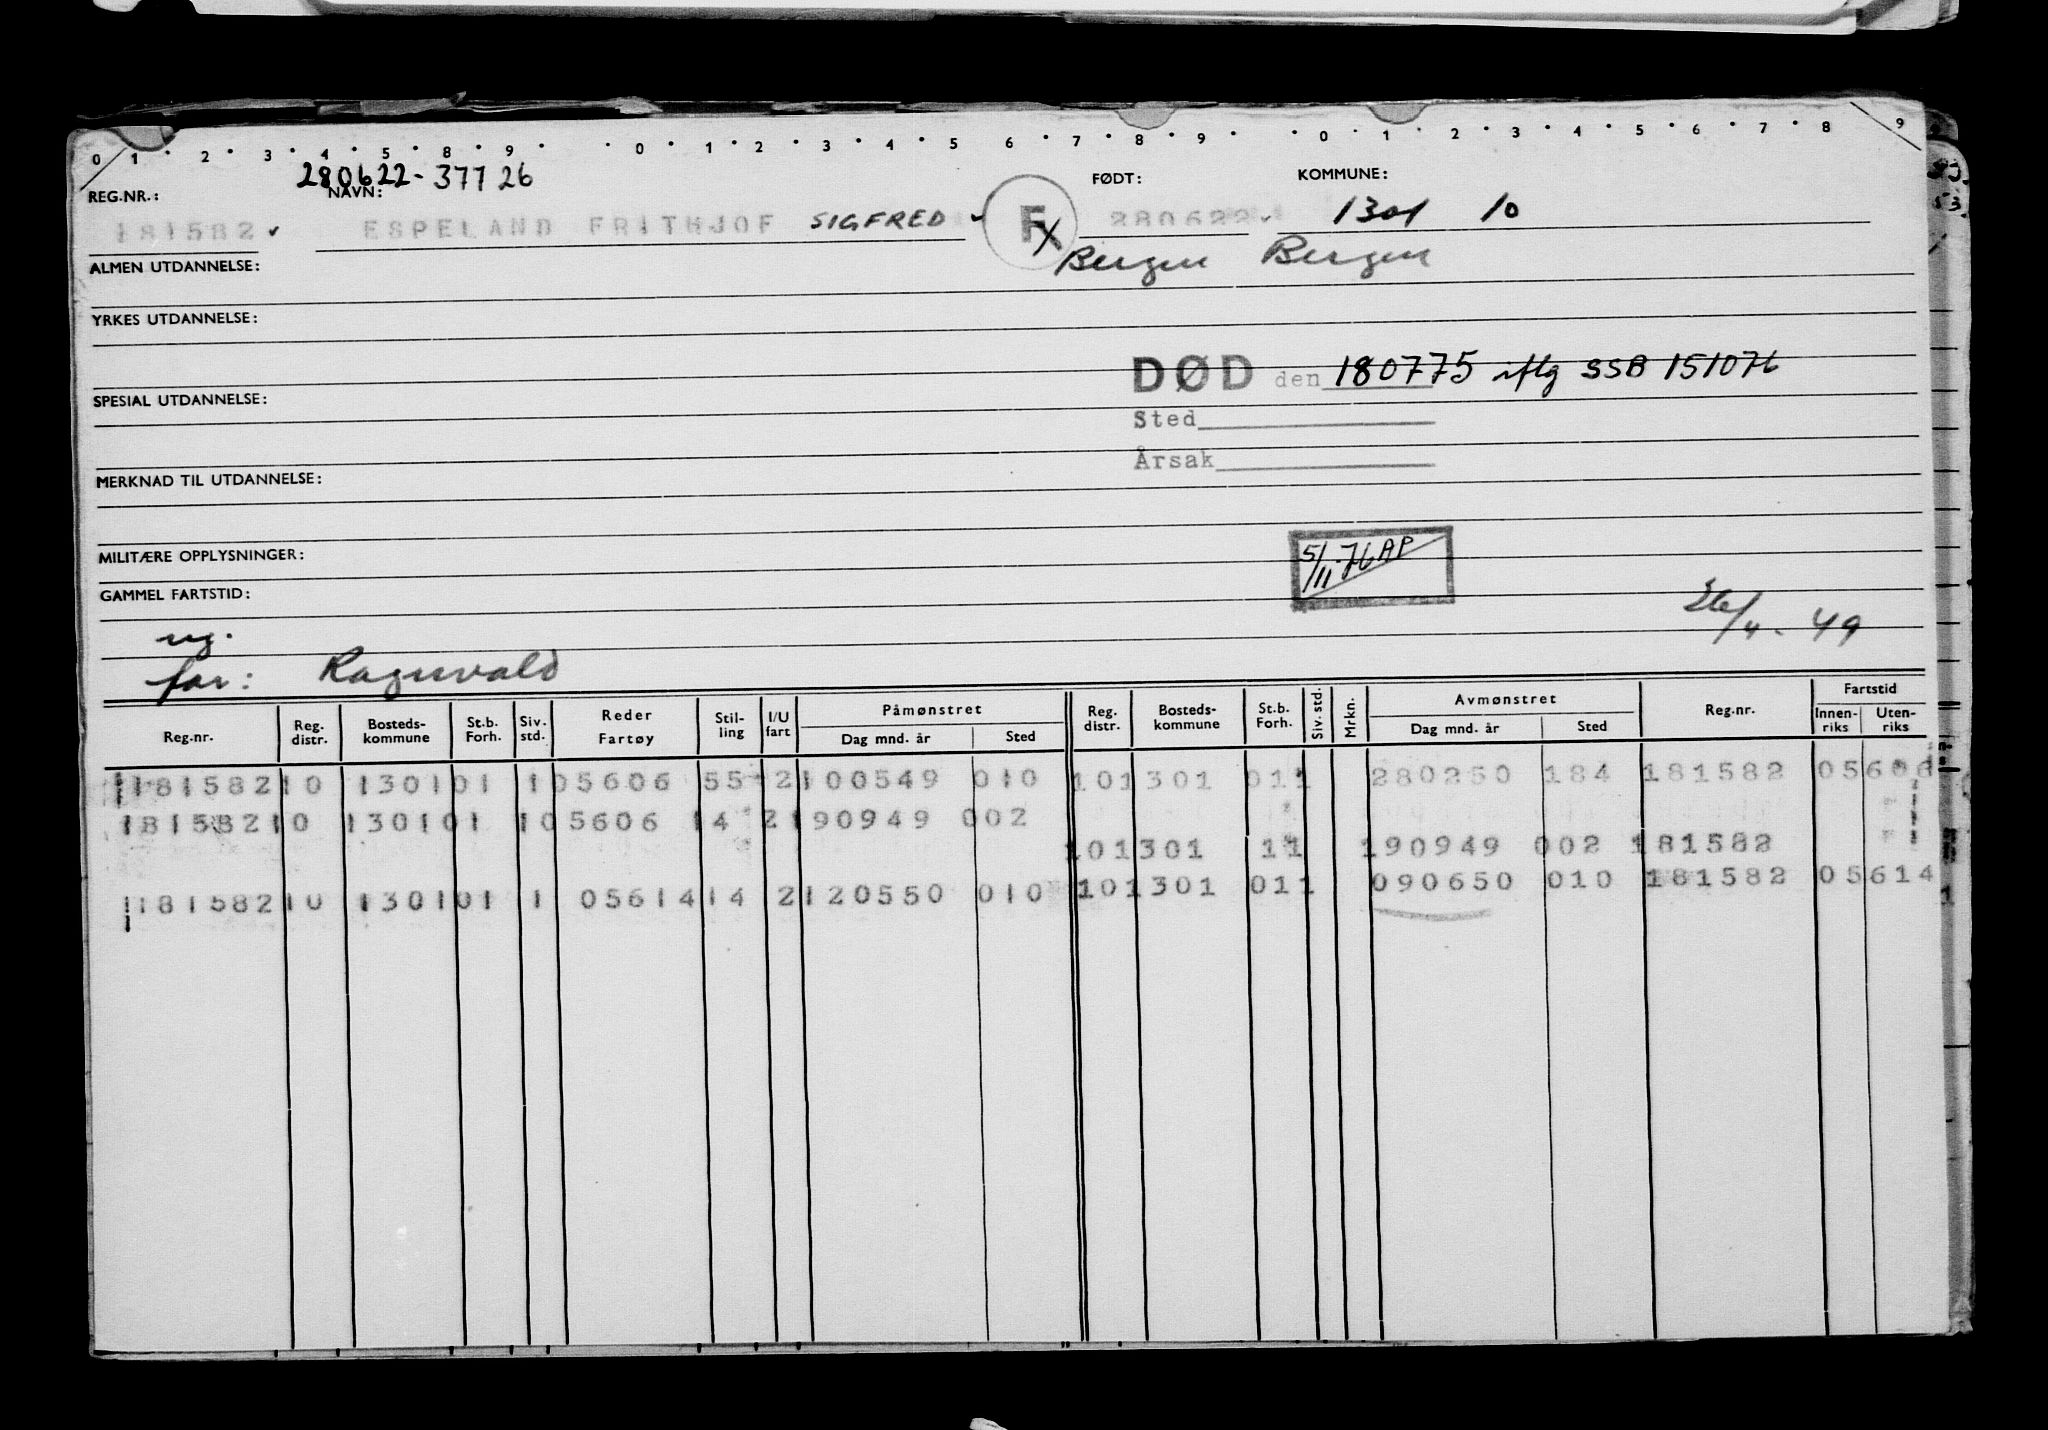 0 1 · 2 · 3 · 4 · 5 · 8 · 9 · · 0 · 1 · 2 · 3 · 4 · 5 · 6 · 7 · 8 · 9 · · 0 · 1 · 2 · 3 · 4 · 5 · 6 · 7 · 8 9
280622-37726
REG.NR.: NAVN: FØDT: KOMMUNE:
181582 ESPELAND FRITHJOF SIGFRED - F 280622 1301 10
x Bergen Bergen
ALMEN UTDANNELSE:
YRKES UTDANNELSE:
DØD den 180775 iflg SSB 151076
SPESIAL UTDANNELSE:
Sted
Årsak
MERKNAD TIL UTDANNELSE:
MILITÆRE OPPLYSNINGER:
5/11-76 AP
GAMMEL FARTSTID:
ug. 49
far: Ragnvald
Reg.nr. Reg. distr. Bosteds-kommune St.b. Forh. Siv. std. Reder Fartøy Stil-ling I/U fart Påmønstret Dag mnd. år Sted Reg. distr. Bosteds-kommune St.b. Forh. Siv. std. Mrkn. Avmønstret Dag mnd. år Sted Reg.nr. Fartstid Innen-riks Uten-riks
181582 10 1301 01 1 05606 55 2 100549 010 10 1301 011 280250 184 181582 05606
181582 10 1301 01 1 05606 14 2 190949 002
10 1301 11 190949 002 181582
181582 10 1301 01 1 05614 14 2 120550 010 10 1301 011 090650 010 181582 05614